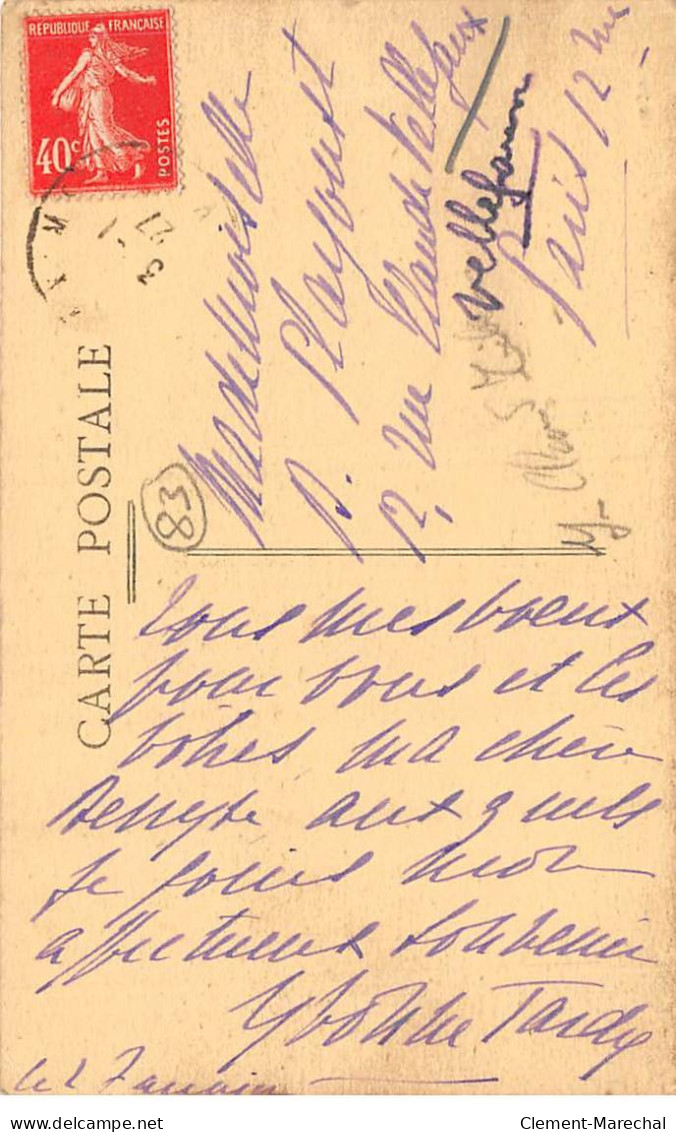 RÉPUBLIQUE FRANÇAISE
40c
POSTES
CARTE POSTALE
83
Mademoiselle
Playoust
12, rue Claude Vellefaux
Vellefaux
Paris 12
Tous mes voeux
pour vous et les
vôtres ma chère
aux quels
je joins mon
affectueux souvenir
Yvonne Tardy
le 2 Janvier
delcampe.net
Clement-Marechal